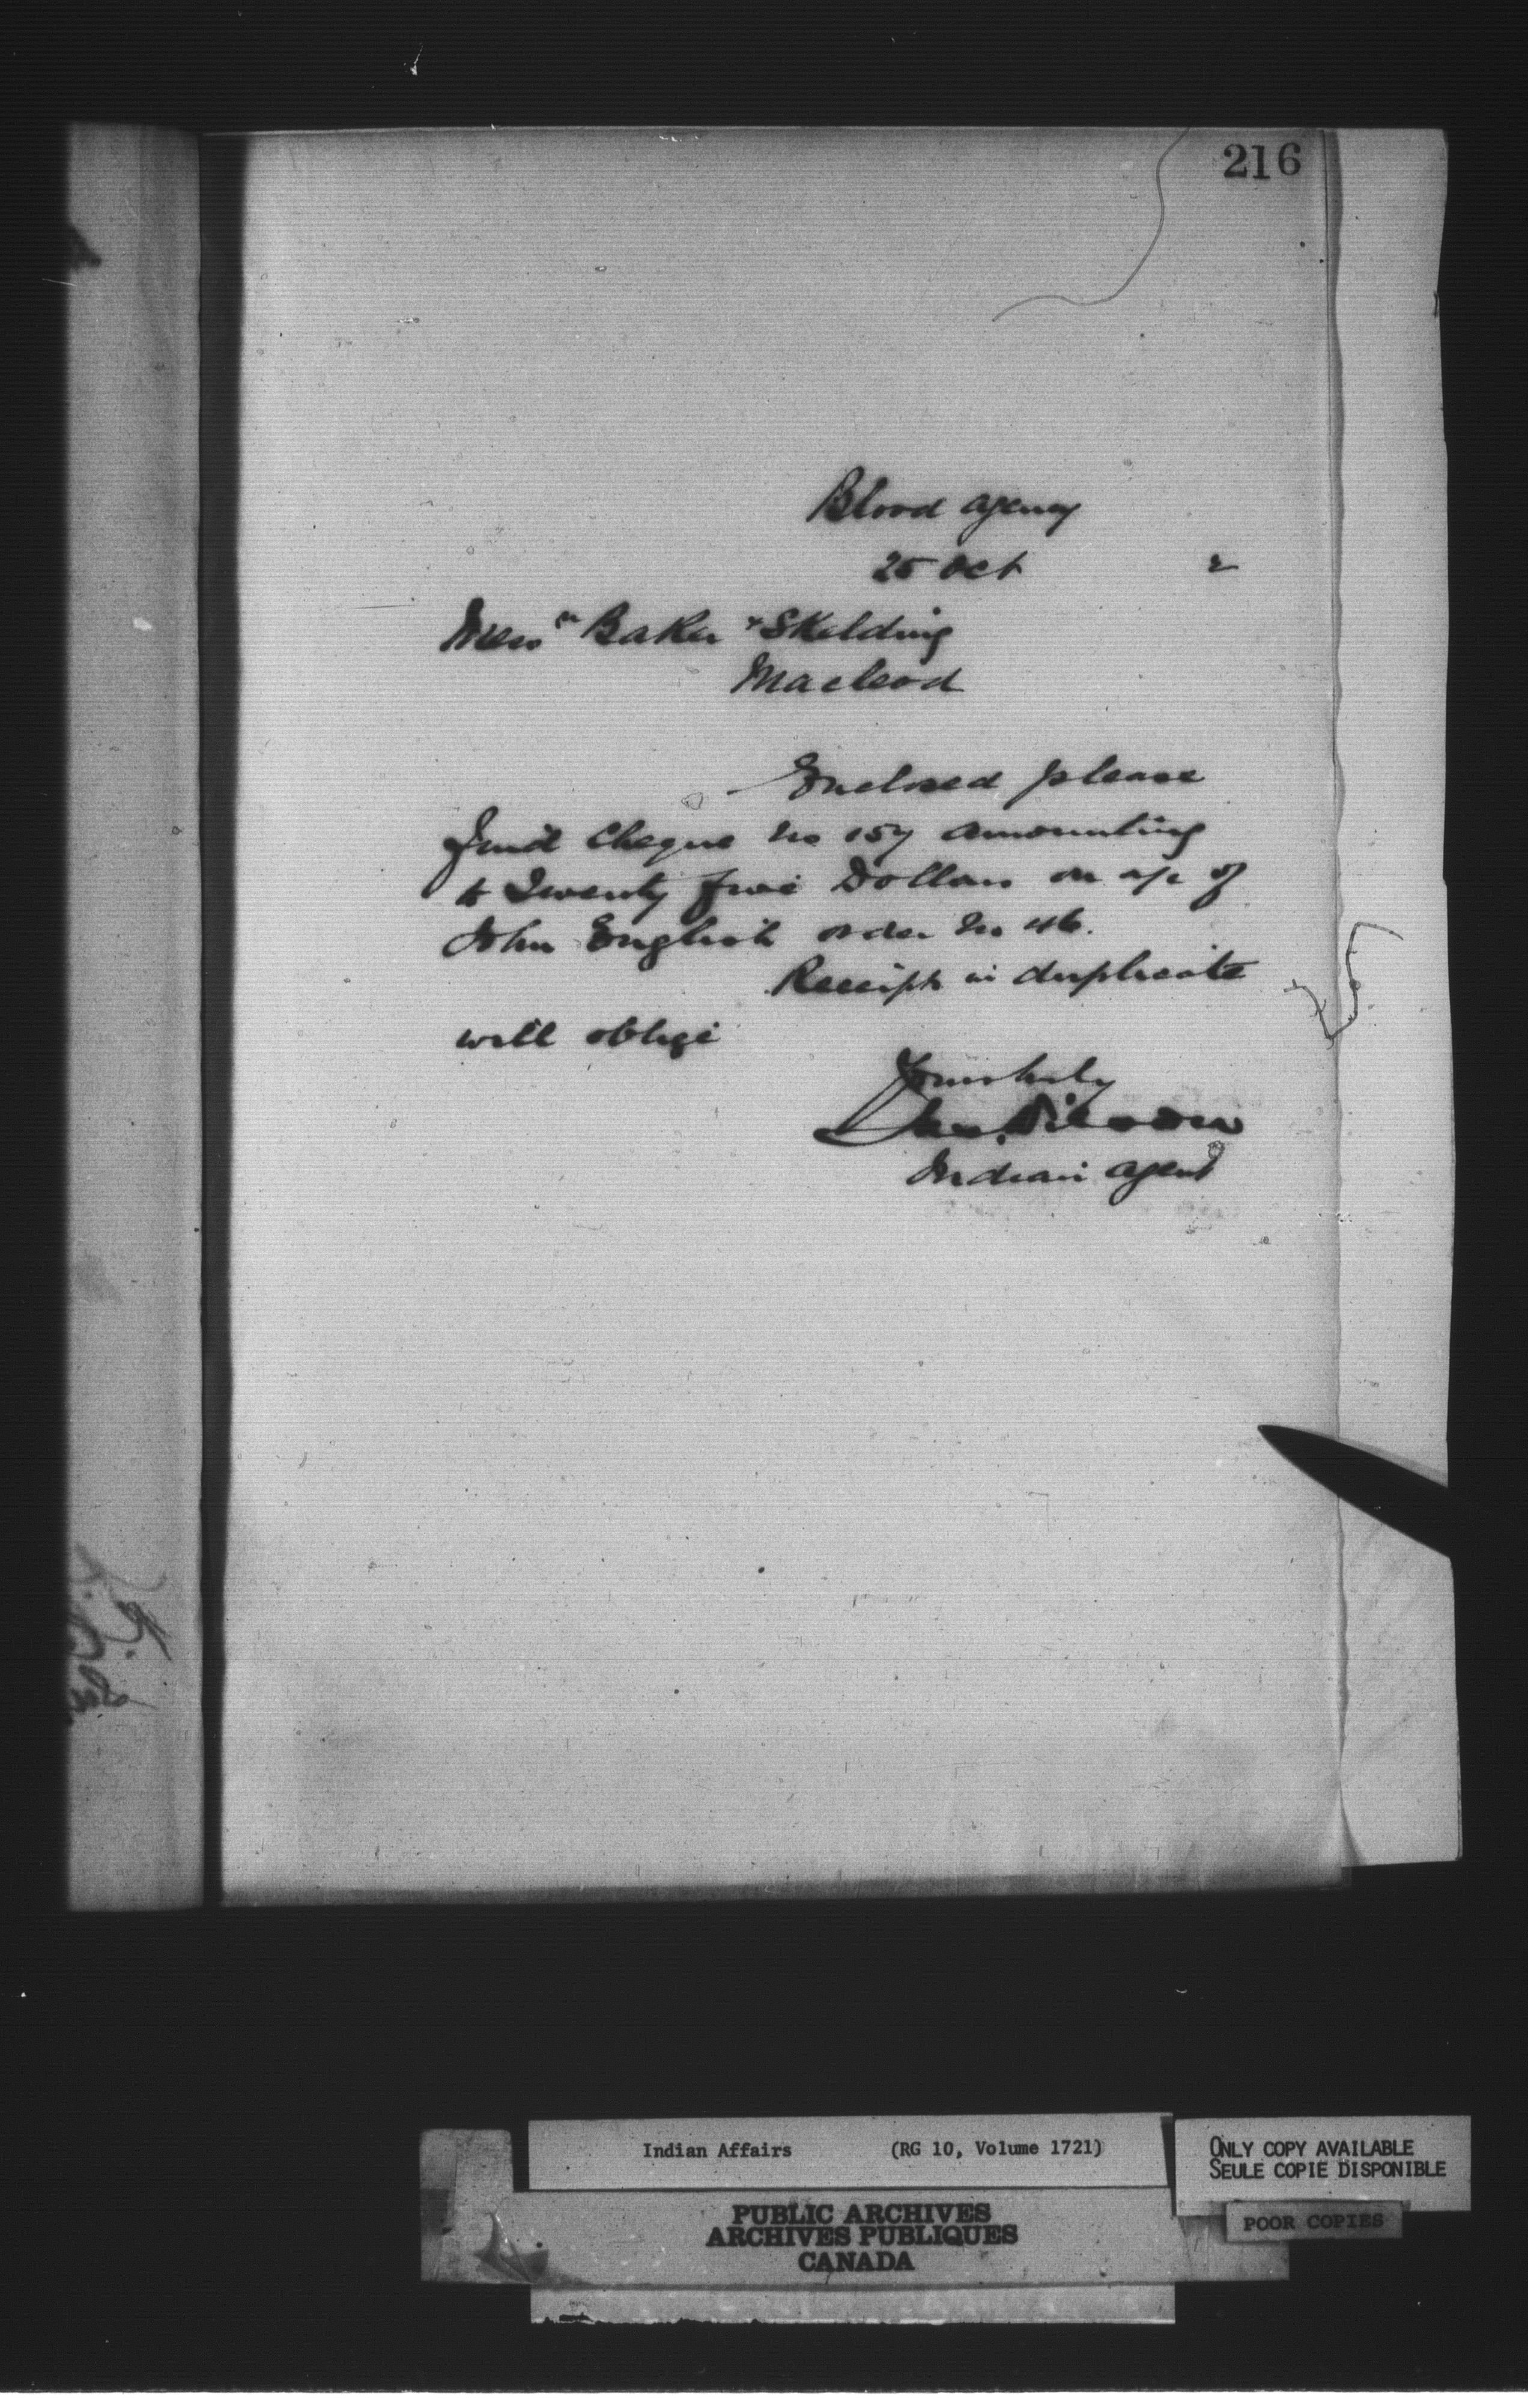 216
Blood Agency
25 Oct 2
Messrs Baker & Skelding
Macleod
Enclosed please
find Cheque No 157 amounting
to Twenty five Dollars on a/c of
John English order No 46.
Receipt in duplicate
will oblige
Yours truly
Jas. Wilson
Indian Agent
Indian Affairs (RG 10, Volume 1721)
ONLY COPY AVAILABLE
SEULE COPIE DISPONIBLE
POOR COPIES
PUBLIC ARCHIVES
ARCHIVES PUBLIQUES
CANADA